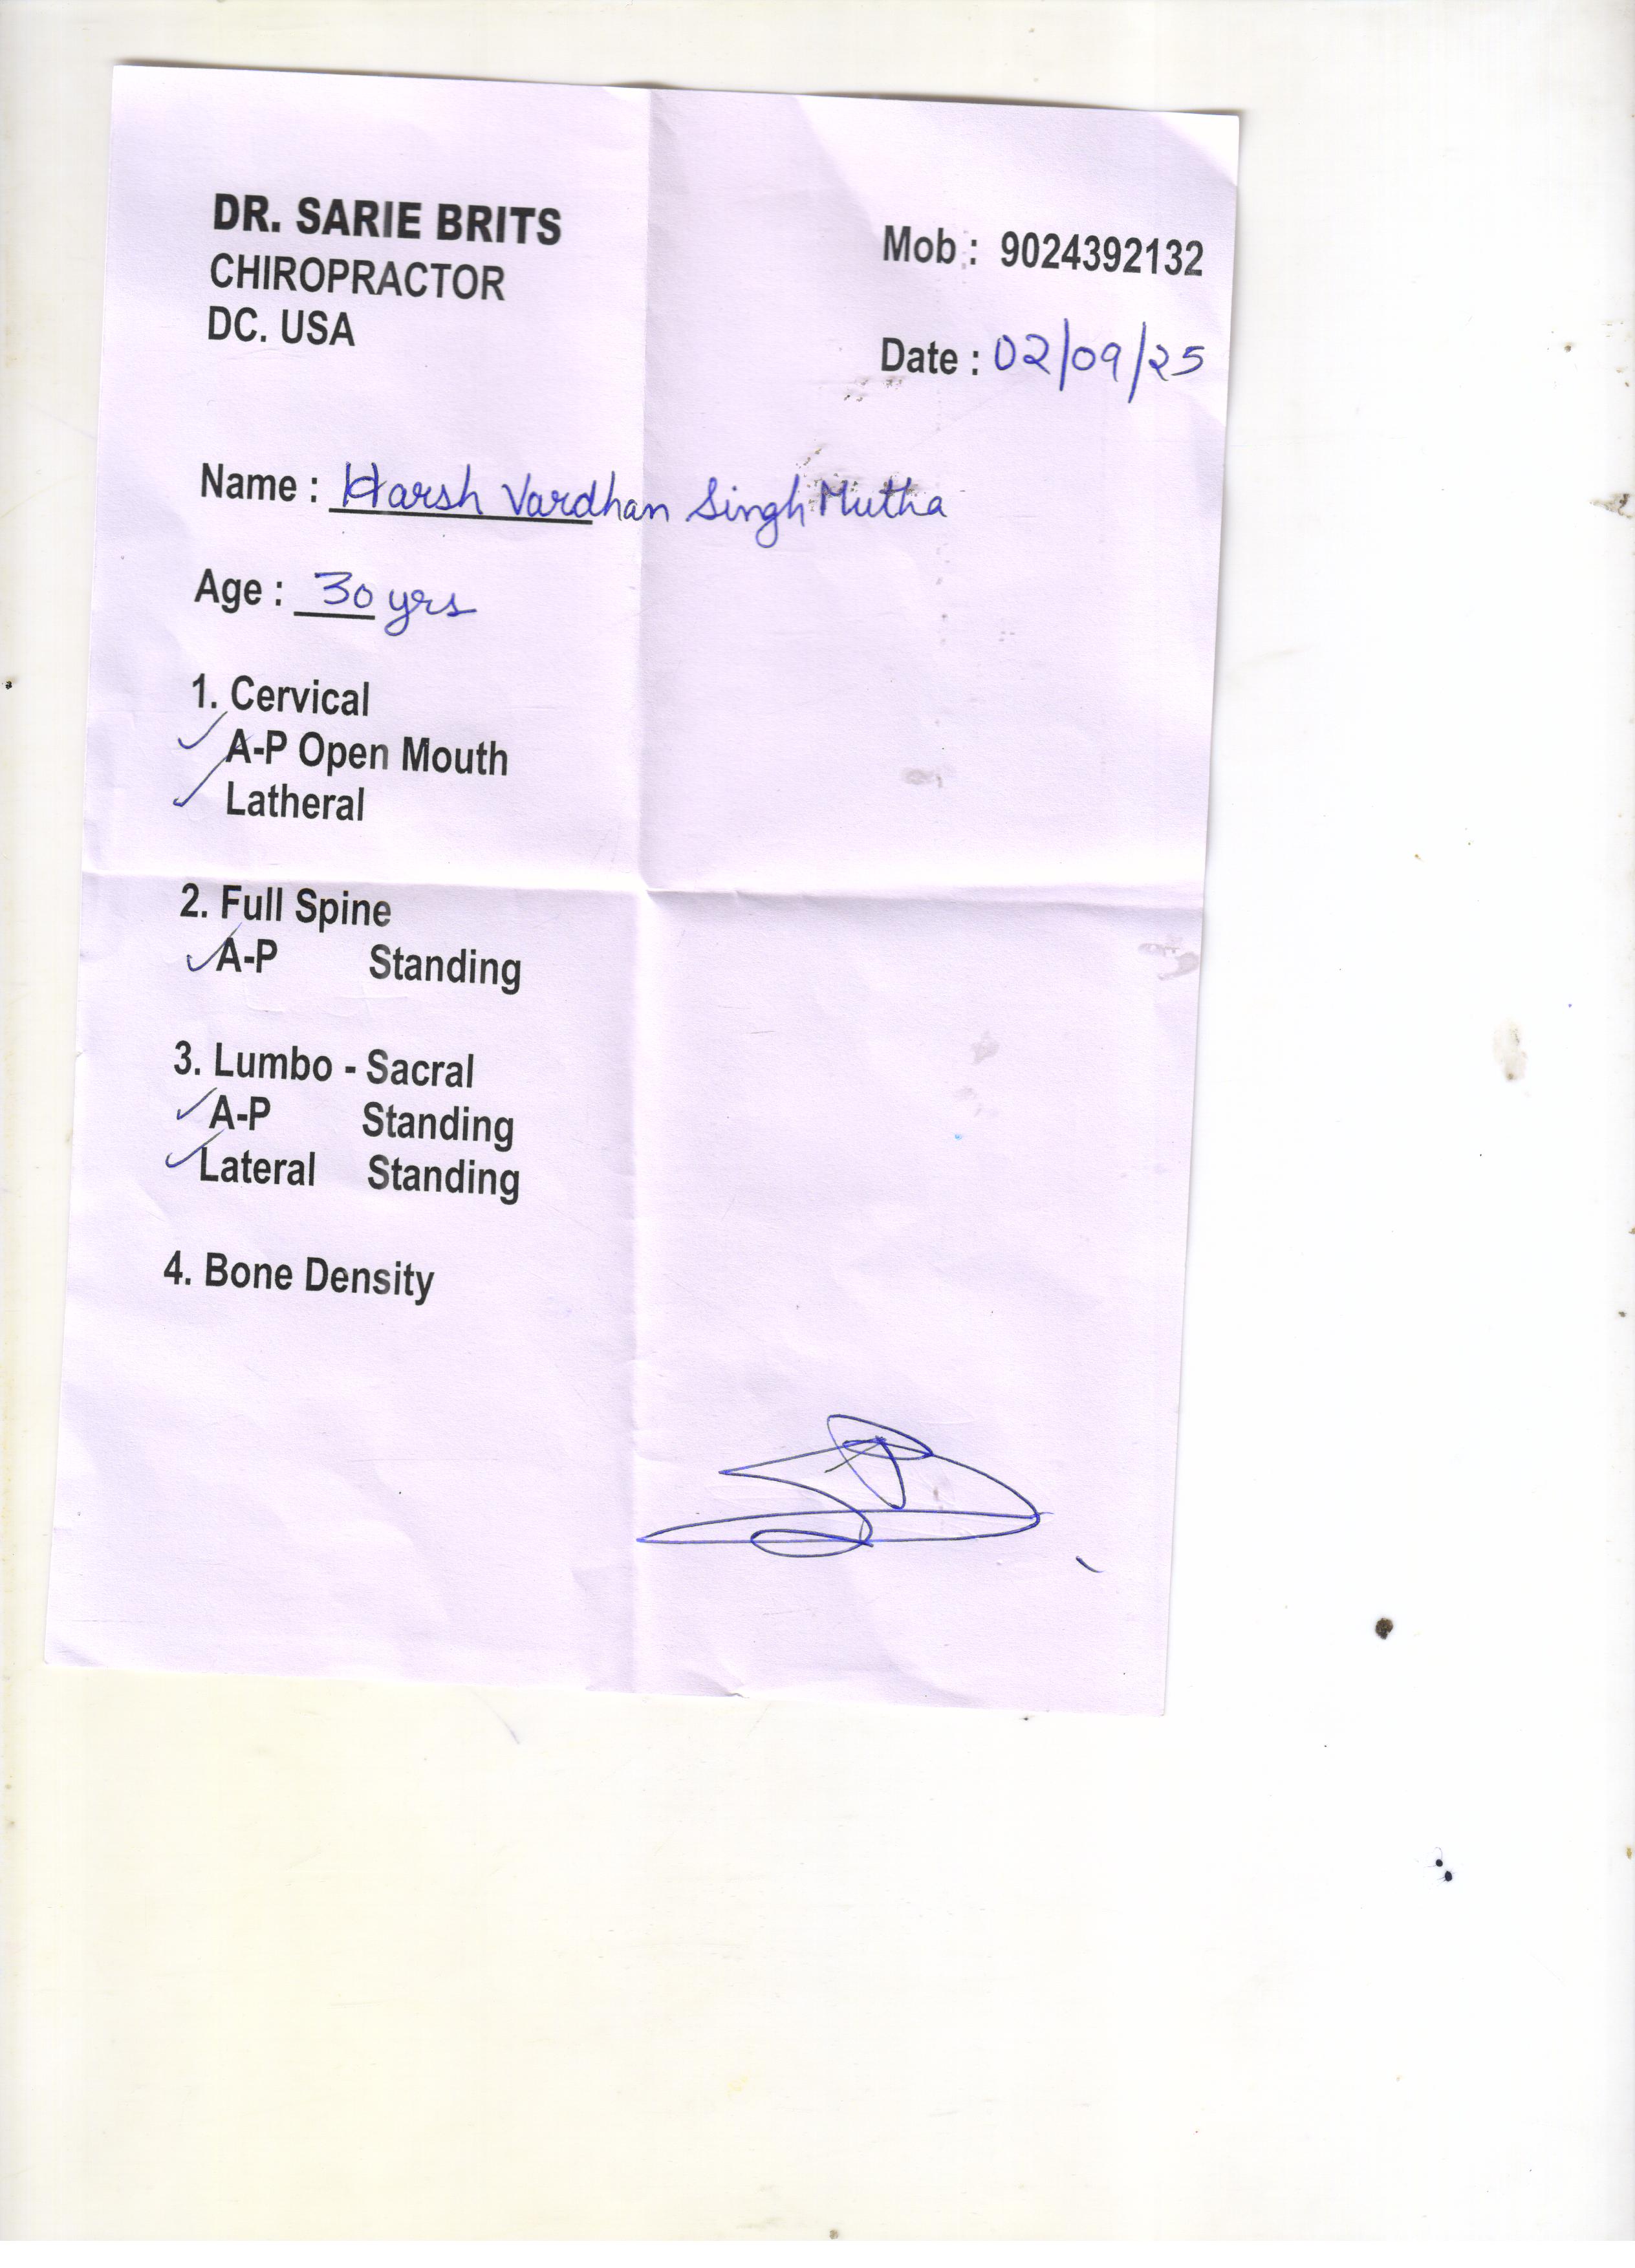 DR. SARIE BRITS
CHIROPRACTOR
DC. USA
Mob : 9024392132
Date : 02/09/25
Name : Harsh Vardhan Singh Mutha
Age : 30 yrs
1. Cervical
✓ A-P Open Mouth
✓ Latheral
2. Full Spine
✓ A-P Standing
3. Lumbo - Sacral
✓ A-P Standing
✓ Lateral Standing
4. Bone Density